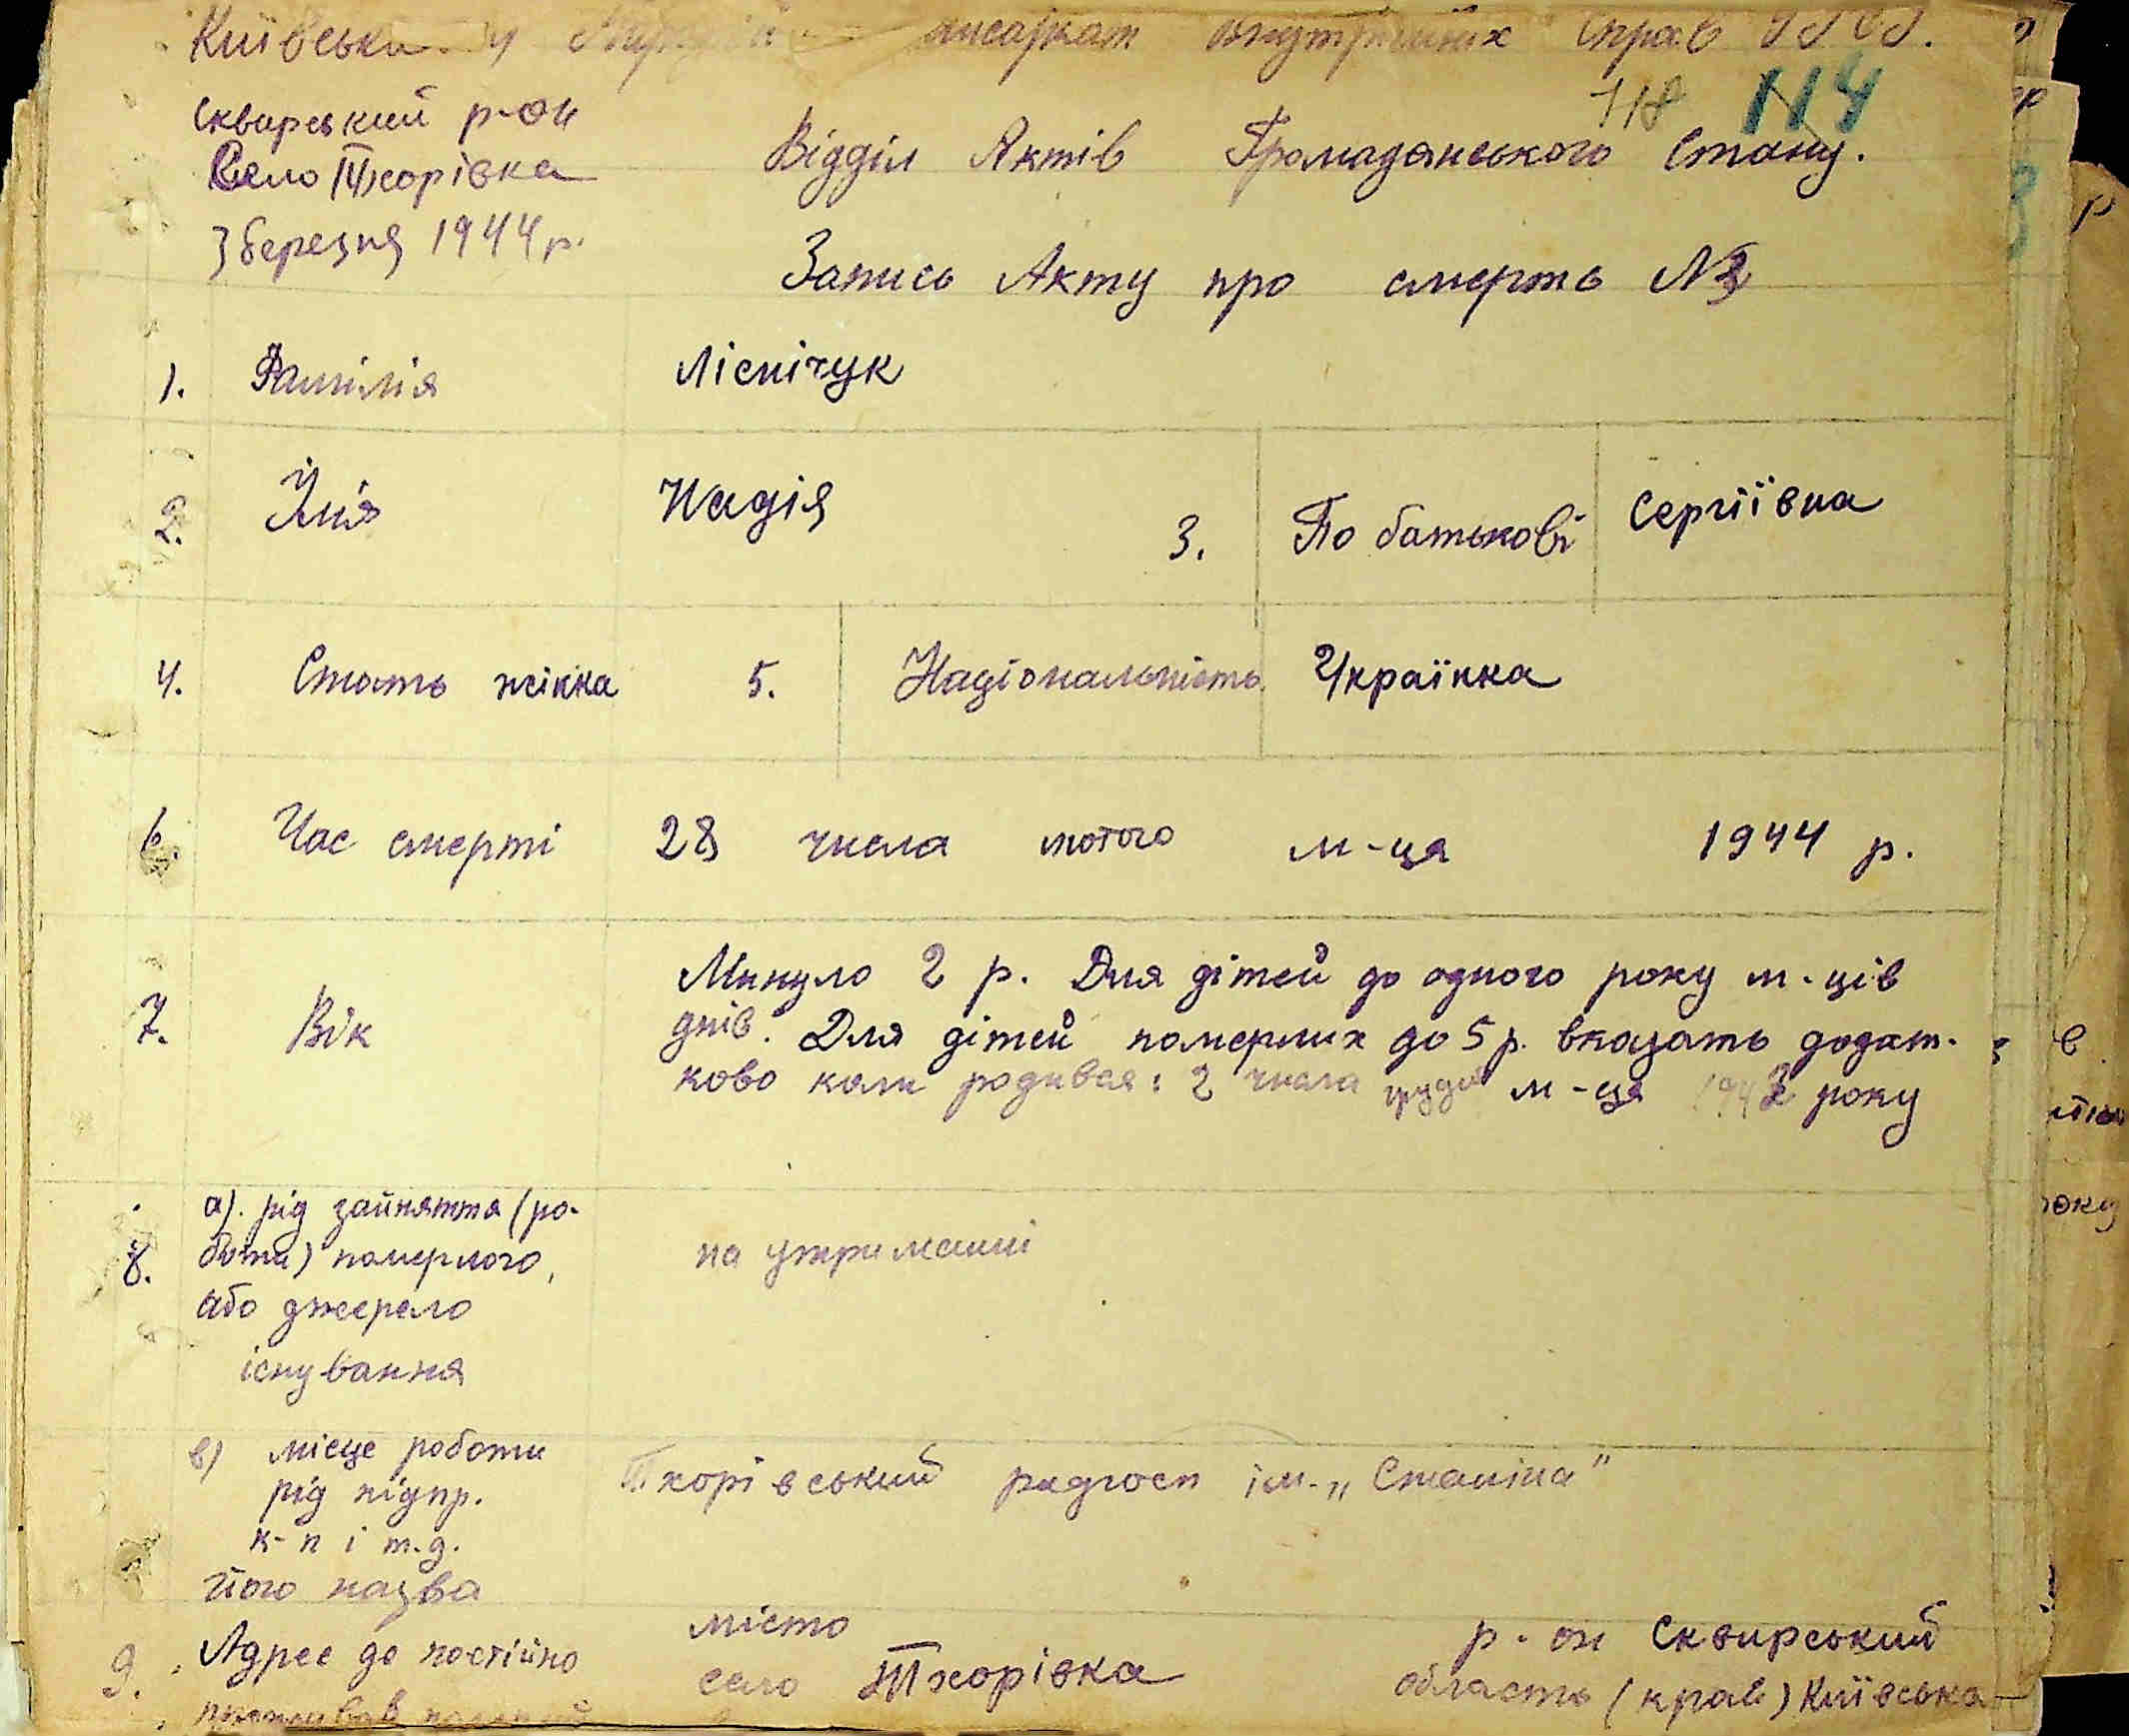 Київська у внутрішніх справ
118 114
Сквирський р-он
Село Тхорівка
3 березня 1944 р.
Відділ Актів Громадянського Стану.
Запись Акту про смерть №3
1. Фамілія Лісничук
2. Імя Надія 3. По батькові Сергіївна
4. Стать жінка 5. Національність Українка
6. Час смерті 28 числа лютого м-ця 1944 р.
7. Вік
Минуло 2 р. Для дітей до одного року м-ців
днів. Для дітей померших до 5 р. вказать додат-
ково коли родився: 2 числа грудня м-ця 1942 року
8. а). рід зайняття (ро-
боти) померлого,
або джерело
існування
на утриманні
в) місце роботи
рід підпр.
к-п і т.д.
його назва
Тхорівський радгосп ім. „Сталіна"
9. Адрес де постійно
проживав
місто
село Тхорівка
р-он Сквирський
область (край) Київська